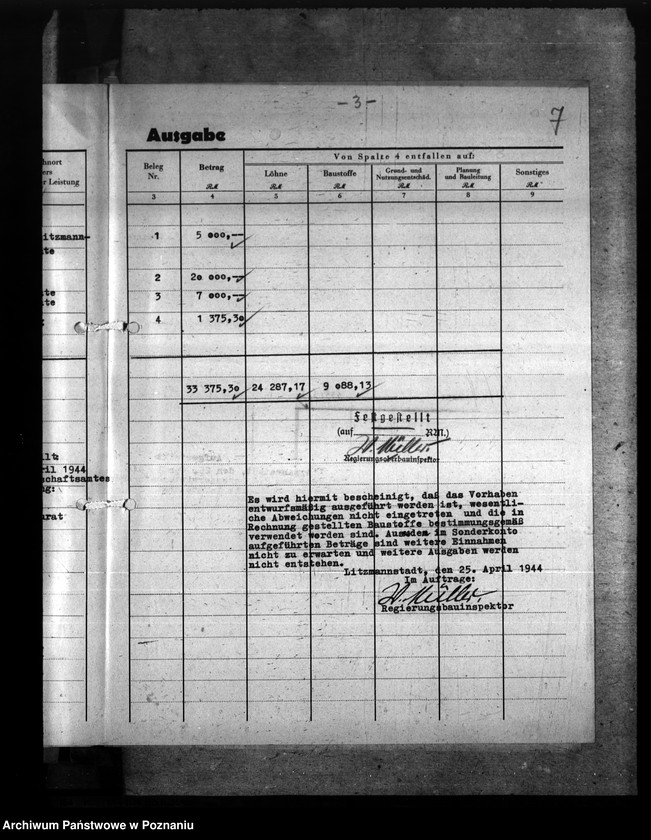 -3-
7
Ausgabe
hnort
ers
er Leistung
Beleg Nr.
Betrag
RM
Von Spalte 4 entfallen auf:
Löhne
RM
Baustoffe
RM
Grund- und Nutzungsentschäd.
RM
Planung und Bauleitung
RM
Sonstiges
RM
3 4 5 6 7 8 9
itzmann-
te
1 5 000,--
2 20 000,--
te
3 7 000,--
te
4 1 375,30
33 375,30 24 287,17 9 088,13
Festgestellt
(auf RM.)
W. Müller
Regierungsoberbauinspektor
lt:
ril 1944
schaftsamtes
ng:
urat
Es wird hiermit bescheinigt, daß das Vorhaben
entwurfsmäßig ausgeführt worden ist, wesentli-
che Abweichungen nicht eingetreten und die in
Rechnung gestellten Baustoffe bestimmungsgemäß
verwendet worden sind. Ausden im Sonderkonto
aufgeführten Beträge sind weitere Einnahmen
nicht zu erwarten und weitere Ausgaben werden
nicht entstehen.
Litzmannstadt, den 25. April 1944
Im Auftrage:
W. Müller.
Regierungsbauinspektor
Archiwum Państwowe w Poznaniu